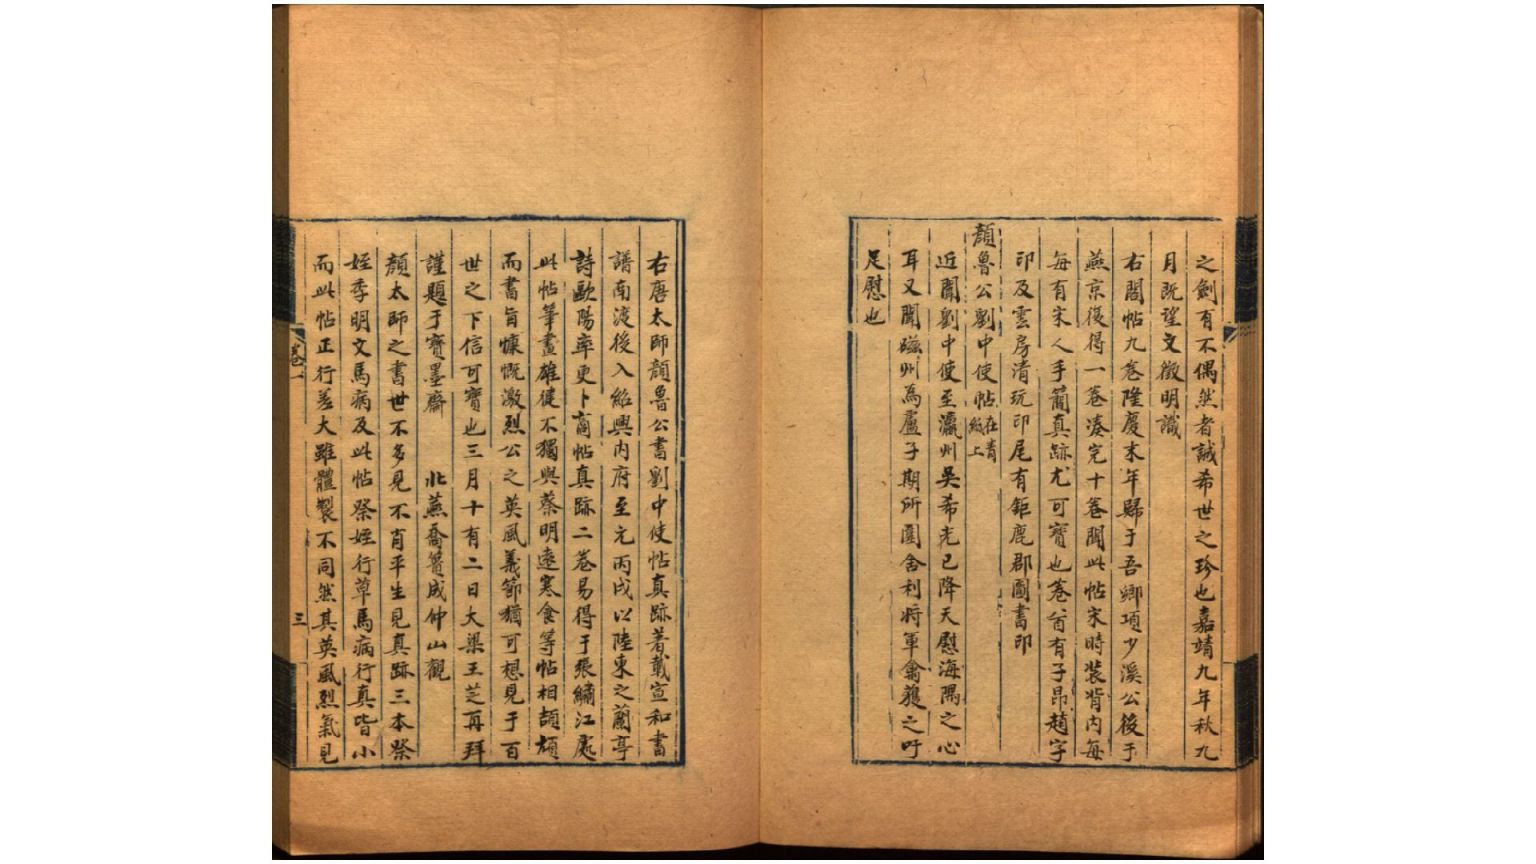 之劍有不偶然者誠希世之珍也嘉靖九年秋九
月既望文徵明識
右閣帖九卷隆慶末年歸于吾鄉項少溪公後于
燕京復得一卷湊完十卷聞此帖宋時裝背內每
每有宋人手籤真跡尤可寶也卷首有子昂趙字
印及雲房清玩印尾有鉅鹿郡圖書印
顏魯公劉中使帖在青紙上
近聞劉中使至瀛州吳希光已降天慰海隅之心
耳又聞磁州為盧子期所圍舍利將軍禽獲之吁
足慰也
右唐太師顏魯公書劉中使帖真跡著載宣和書
譜南渡後入紹興內府至元丙戌以陸柬之蘭亭
詩歐陽率更卜商帖真跡二卷易得于張繡江處
此帖筆畫雄健不獨與蔡明遠寒食等帖相頡頏
而書旨慷慨激烈公之英風義節猶可想見于百
世之下信可寶也三月十有二日大梁王芝再拜
謹題于寶墨齋 北燕喬簣成仲山觀
顏太師之書世不多見不肖平生見真跡三本祭
姪季明文馬病及此帖祭姪行草馬病行真皆小
而此帖正行差大雖體製不同然其英風烈氣見
卷一
三